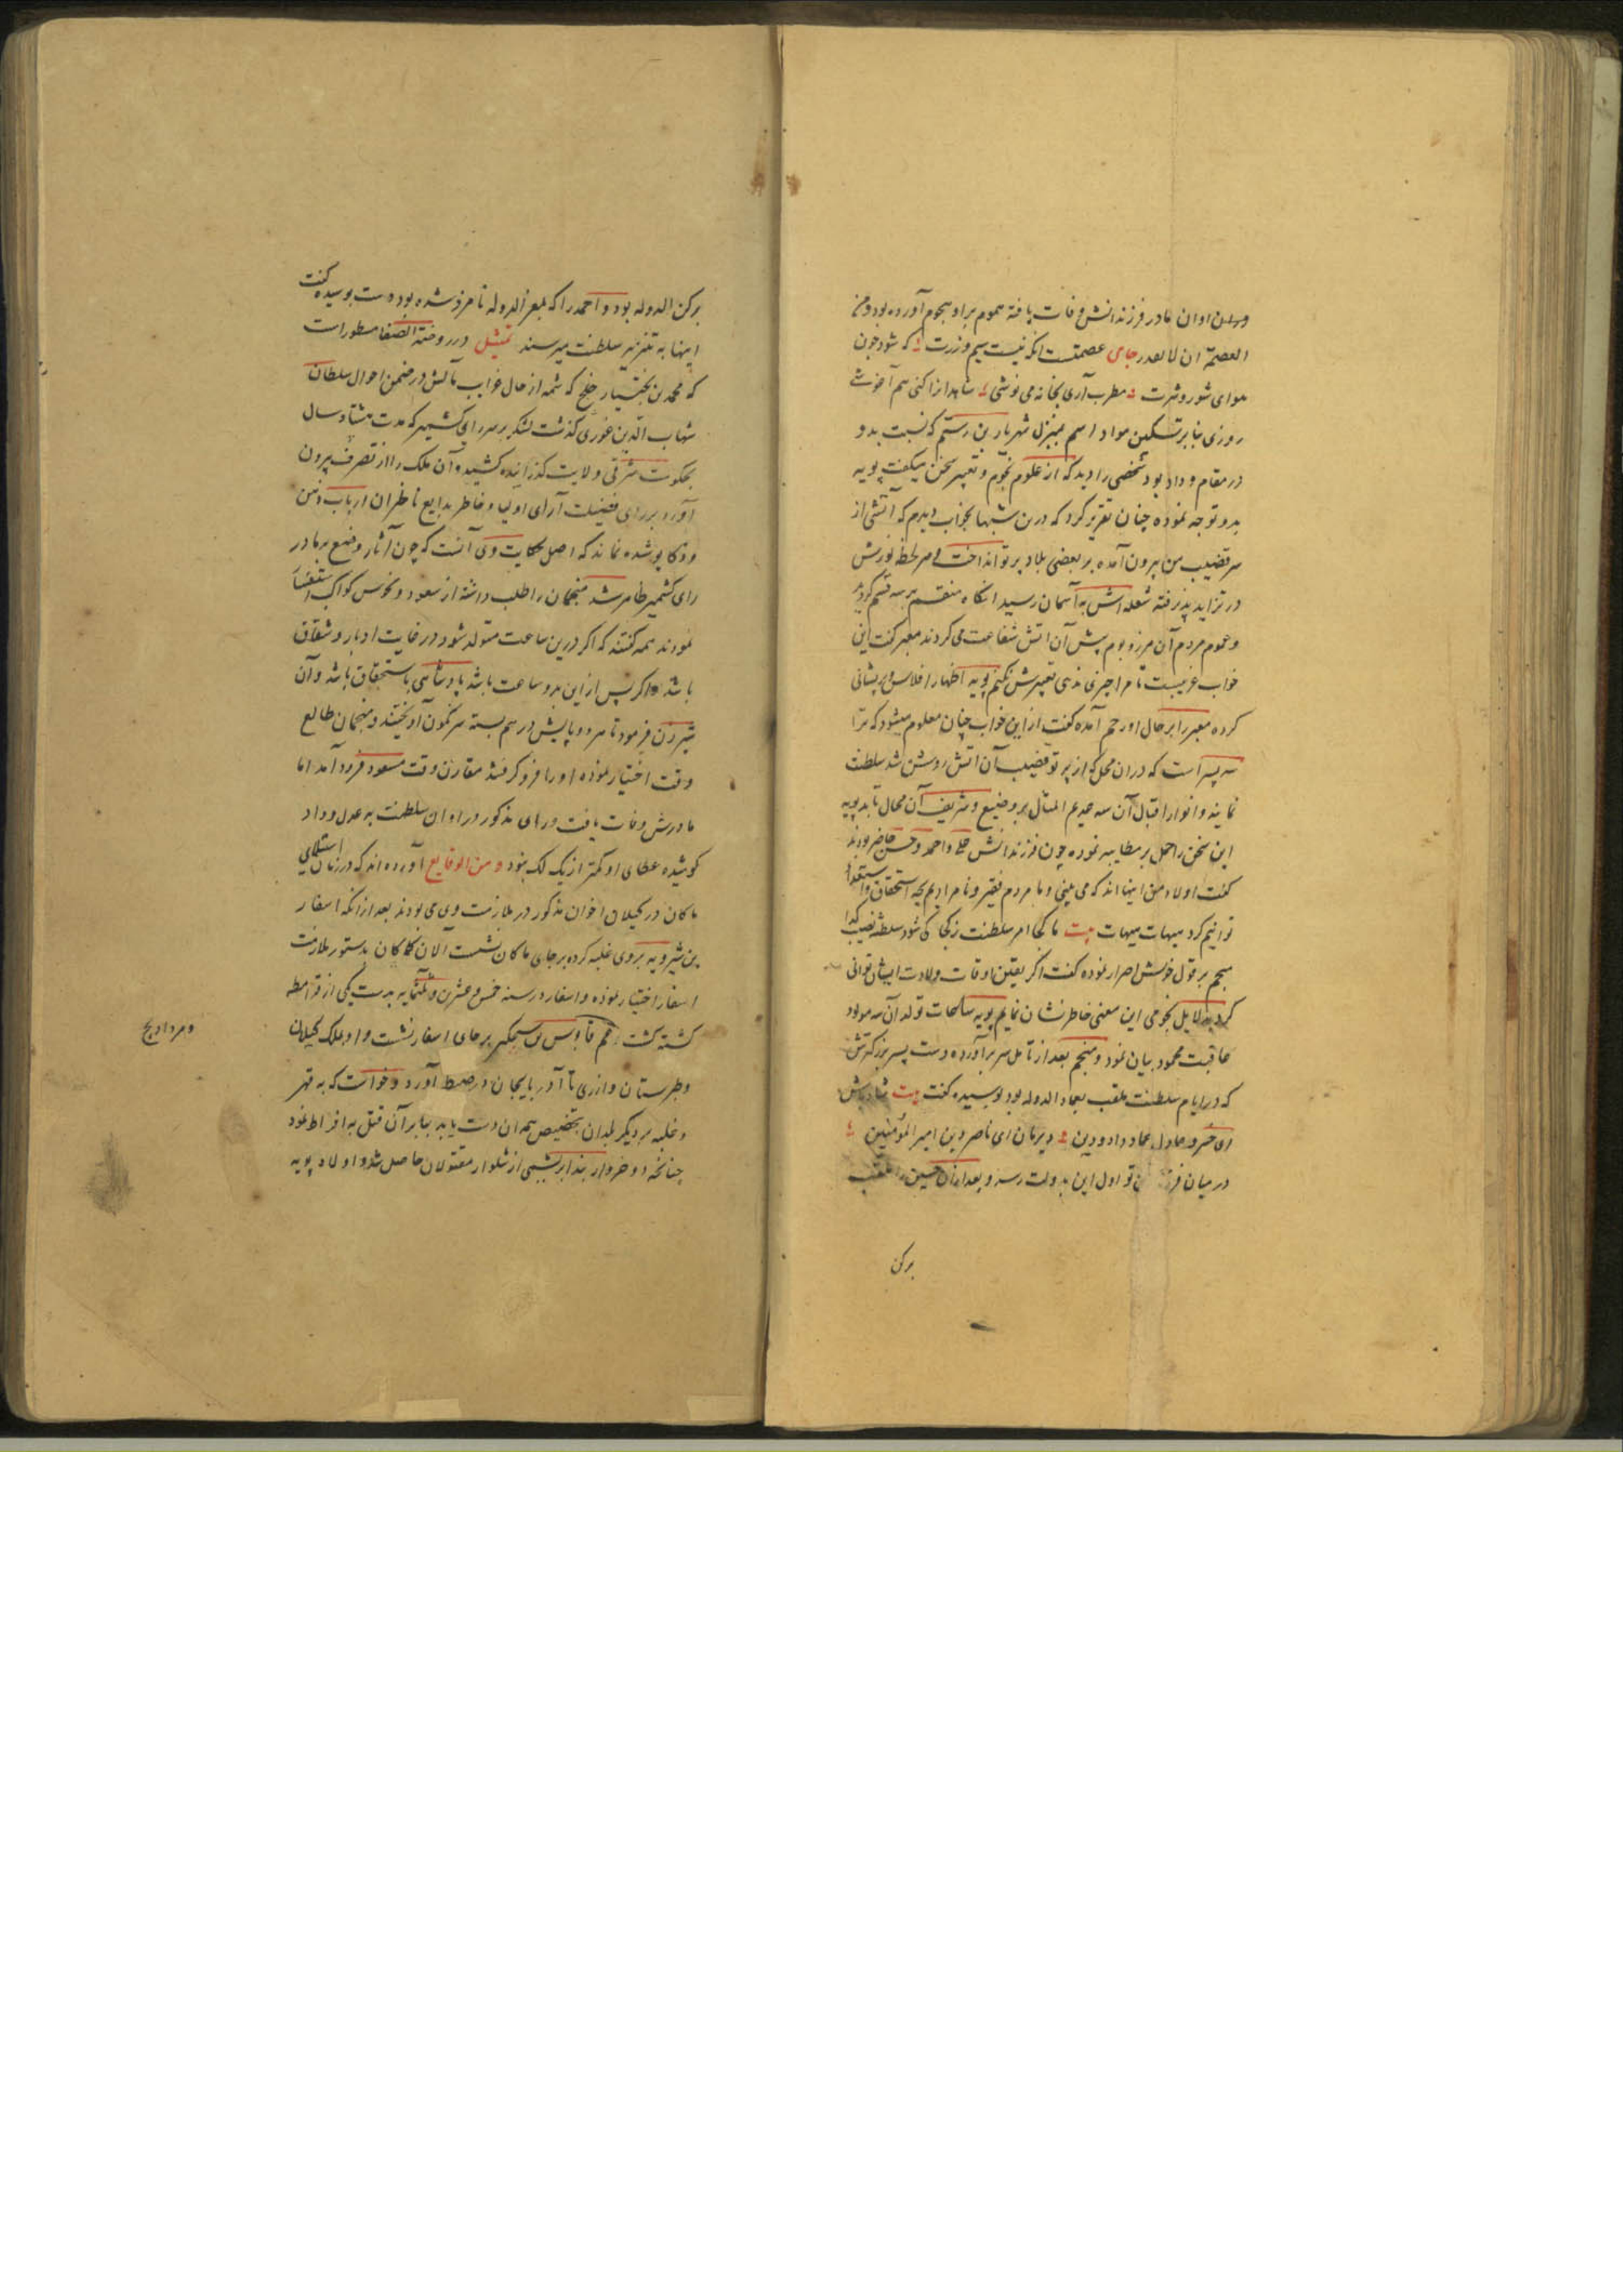 اوان مادر فرزندانش وفات یافته هموم براو هجوم آورده بود ومن
العصمة ان لا تعدر جای عصمتست انکه نیست سیم وزرت که شود چون
هوای شور وشرت مطرب آری بخانه می نوشی شاهد از اکنی هم آغوشی
روزی بنابر تسکین مواد بمنزل شهریار بن رستم که نسبت بدو
در مقام وداد بود شخصی را دید که از علوم نجوم وتعبیر سخن میکفت بویه
بدو توجه نموده چنان تقریر کرد که درین شبها بخواب دیدم که آتشی از
سر قضیب من بیرون آمده بر بعضی بلاد پرتو انداخت و هر لحظه نورش
در تزاید پذیرفته شعله اش به آسمان رسید انکاه منقسم بر سه قسم کردید
وعموم مردم آن مرز وبوم پیش آن اتش شفاعت می کردند معبر کفت این
خواب غریبست تا مرا چیزی ندهی تعبیرش نکنم بویه اظهار افلاس و پریشانی
کرده معبر را بر حال او رحم آمده کفت از این خواب چنان معلوم میشود که ترا
سه پسر است که دران محل که از پرتو قضیب آن اتش روشن شد سلطنت
نمایند وانوار اقبال آن سه عدیم المثال بر وضیع وشریف آن محال تابد بویه
این سخن را حمل بر مطایبه نموده چون فرزندانش علی واحمد وحسن حاضر بودند
کفت اولاد من اینها اند که می بینی وما مردم فقیر ونامرادیم بچه استحقاق واستعداد
توانیم کرد هیهات هیهات بیت ما کجا امر سلطنت ز کجا کی شود سلطنت نصیب کدا
منجم بر قول خویش اصرار نموده کفت اکر یقین اوقات ولادت ایشان توانی
کرد بدلایل نجومی این معنی خاطر نشان نمایم بویه ساعات تولد آن سه مولود
عاقبت محمود بیان نمود ومنجم بعد از تامل سر برآورده دست پسر بزرکترش
که در ایام سلطنت ملقب بعماد الدوله بود بوسیده کفت بیت شاد باش
ای خسرو عادل عماد داد ودین دیر مان ای ناصر دین امیر المؤمنین
در میان تو اول این بدولت رسد وبعد ازان حسین را که ملقب
برکن
برکن الدوله بود واحمد را که بمعز الدوله نامزد شده بود دست بوسیده کفت
اینها به نیز سلطنت میرسند تمثیل در روضة الصفا مسطور است
که محمد بن بختیار خلج که شمه از حال غرایب مآلش در ضمن احوال سلطان
شهاب الدین غوری کذشت لشکر بر سر رای کشمیر که مدت هشتاد سال
بحکومت شرقی ولایت کذرانیده کشیده وآن ملک را از تصرف بیرون
آورد بر رای فضیلت آرای اولیا وخاطر بدایع ناظران ارباب ذهن
وذکا پوشیده نماند که اصل حکایت وی آنست که چون آثار وضع بر مادر
رای کشمیر ظاهر شد منجمان را طلب داشته از سعود ونحوس کواکب استفسار
نمودند همه کفتند که اکر درین ساعت متولد شود در غایت ادبار وشقاق
باشد واکر پس از این بدو ساعت باشد پادشاهی باستحقاق باشد وآن
شیرزن فرمود تا هر دو پایش در هم بسته سرنکون آویختند ومنجمان طالع
وقت اختیار نموده او را فرو کرفتند مقارن وقت مسعود فرود آمد اما
مادرش وفات یافت ورای مذکور در اوان سلطنت به عدل وداد
کوشیده عطای او کمتر از یک لک نبود ومن الوقایع آورده اند که در زمان استیلای
ماکان در کیلان اخوان مذکور در ملازمت وی می بودند بعد ازانکه اسفار
بن شیرویه بر وی غلبه کرده بر جای ماکان نشست الان کماکان بدستور ملازمت
اسفار اختیار نموده واسفار در سنه خمس وعشرین وثلثمایه بدست یکی از قرامطه
کشته کشت عم قابوس وشمکیر بر جای اسفار نشست و او ملک کیلان
ومرداویج
وطبرستان واز ری تا آذربایجان در ضبط آورد وخواست که به قهر
وغلبه بر دیکر بلدان بتخصیص همدان دست یابد بنابر آن قتل به افراط نمود
چنانچه دو خروار بند ابریشمی از شلوار مقتولان حاصل شد واولاد بویه